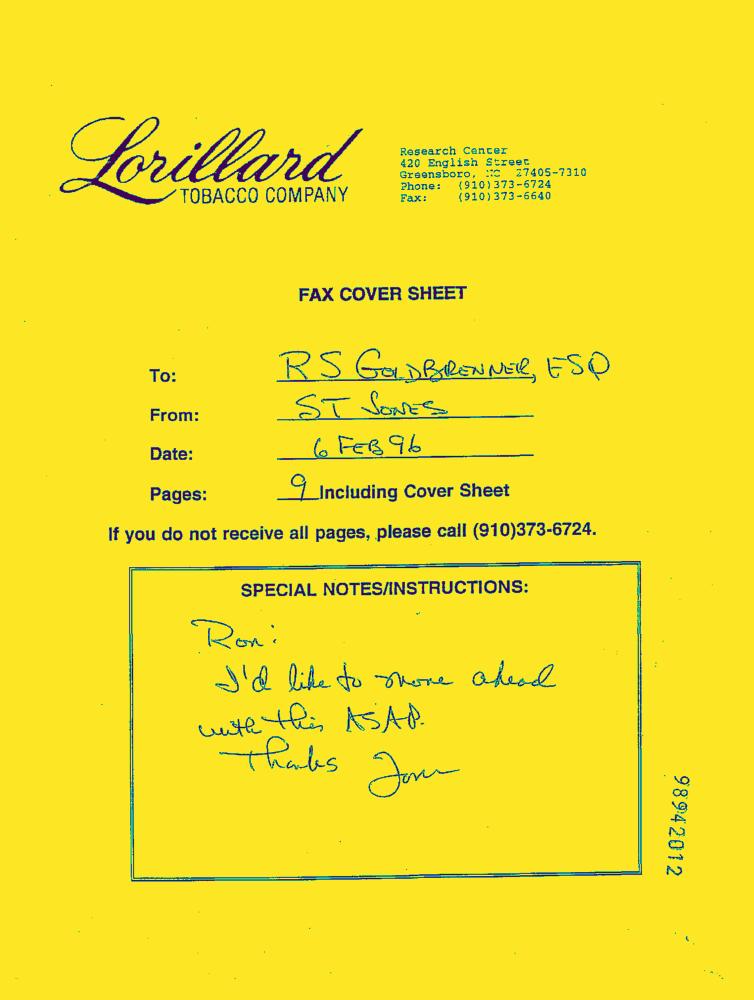 Lorillard
TOBACCO COMPANY
Research Center
420 English Street
Greensboro, NC 27405-7310
Phone: (910)373-6724
Fax: (910)373-6640
FAX COVER SHEET
To: RS GOLDBRENNER, ESQ
From: ST JONES
Date: 6 FEB 96
Pages: 9 Including Cover Sheet
If you do not receive all pages, please call (910)373-6724.
SPECIAL NOTES/INSTRUCTIONS:
Ron:
I'd like to move ahead
with this ASAP.
Thanks Jones
98942012